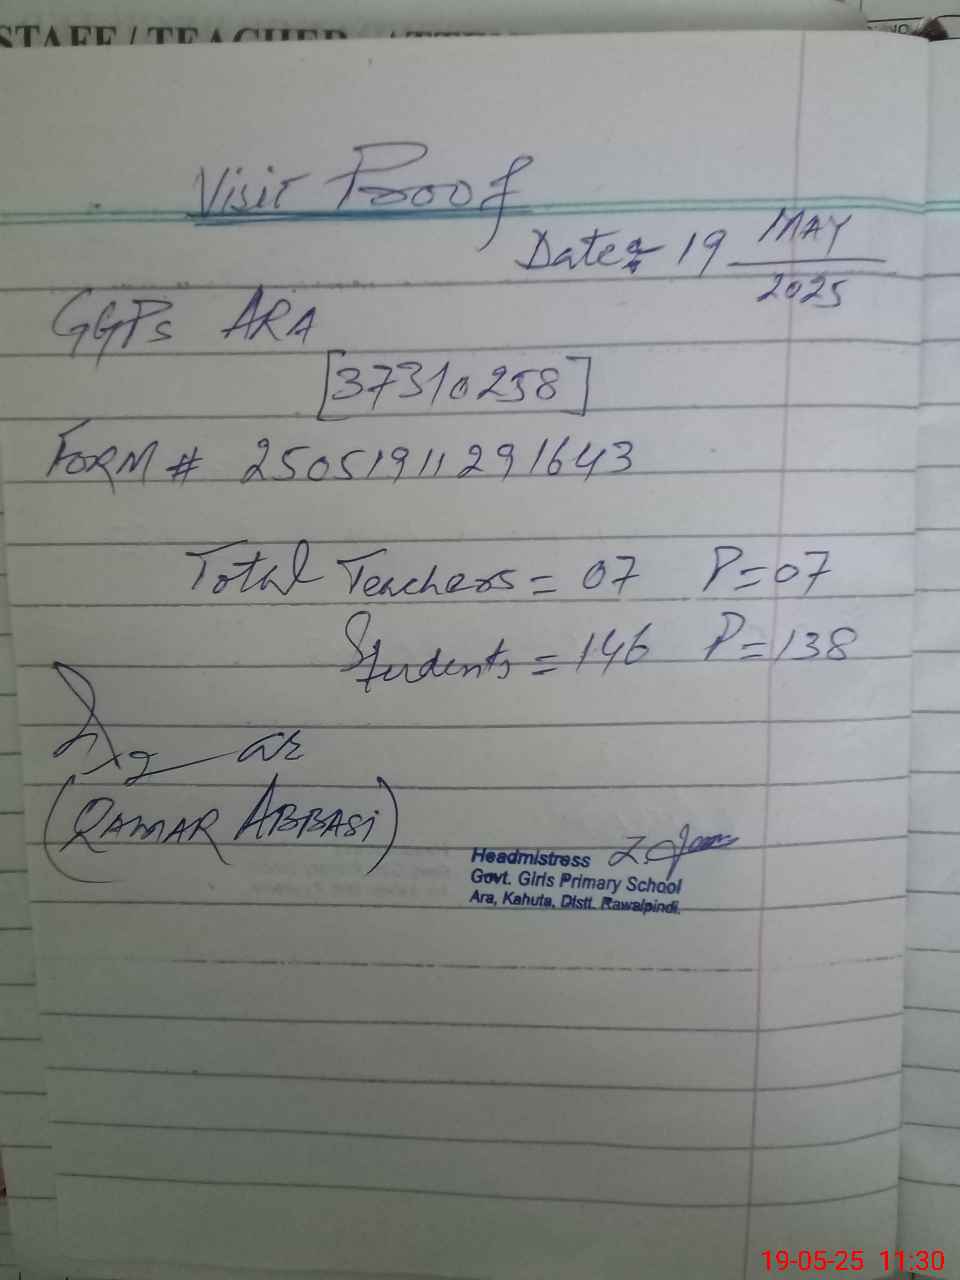 STAFF / TEACHER
Visit Proof
Date:- 19 MAY
2025
GGPs ARA
[37310258]
FORM # 25051911291643
Total Teachers = 07 P=07
Students = 146 P=138
(QAMAR ABBASI)
Headmistress
Govt. Girls Primary School
Ara, Kahuta, Distt. Rawalpindi.
19-05-25 11:30